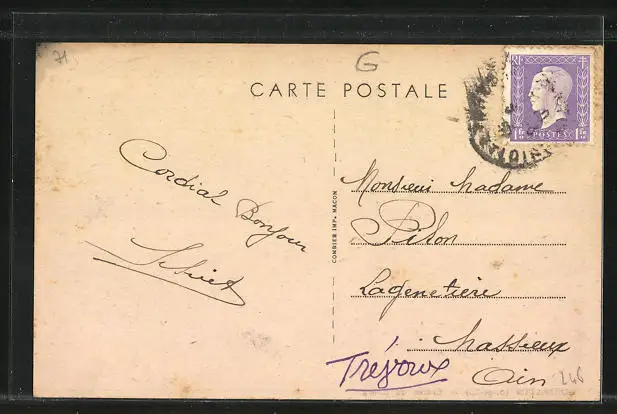 71
G
CARTE POSTALE
RF
1F50 POSTES 1F50
Cordial Bonjour
COMBIER IMP. MACON
Monsieur Madame
Pilon
Lagenetiere
Massieux
Trévoux
Ain
246